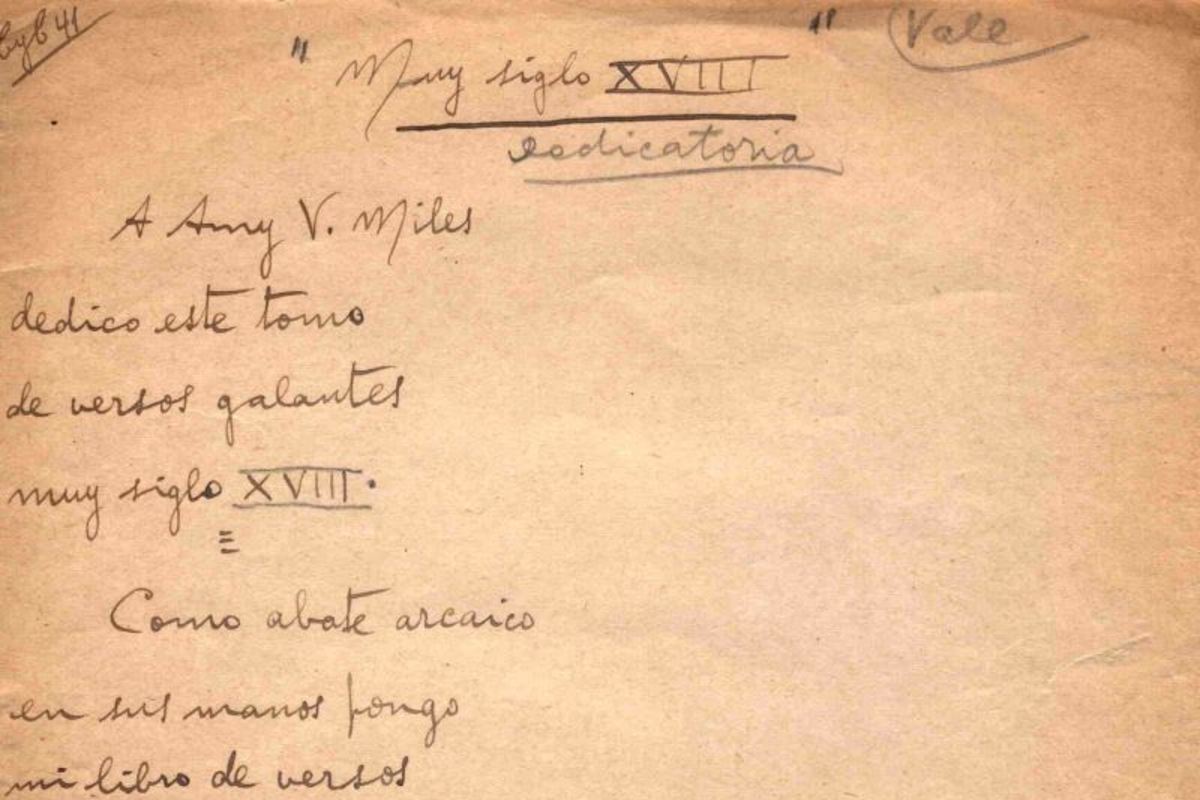 Vale
"Muy siglo XVIII"
dedicatoria
A Amy V. Miles
dedico este tomo
de versos galantes
muy siglo XVIII.
Como abate arcaico
en sus manos pongo
mi libro de versos